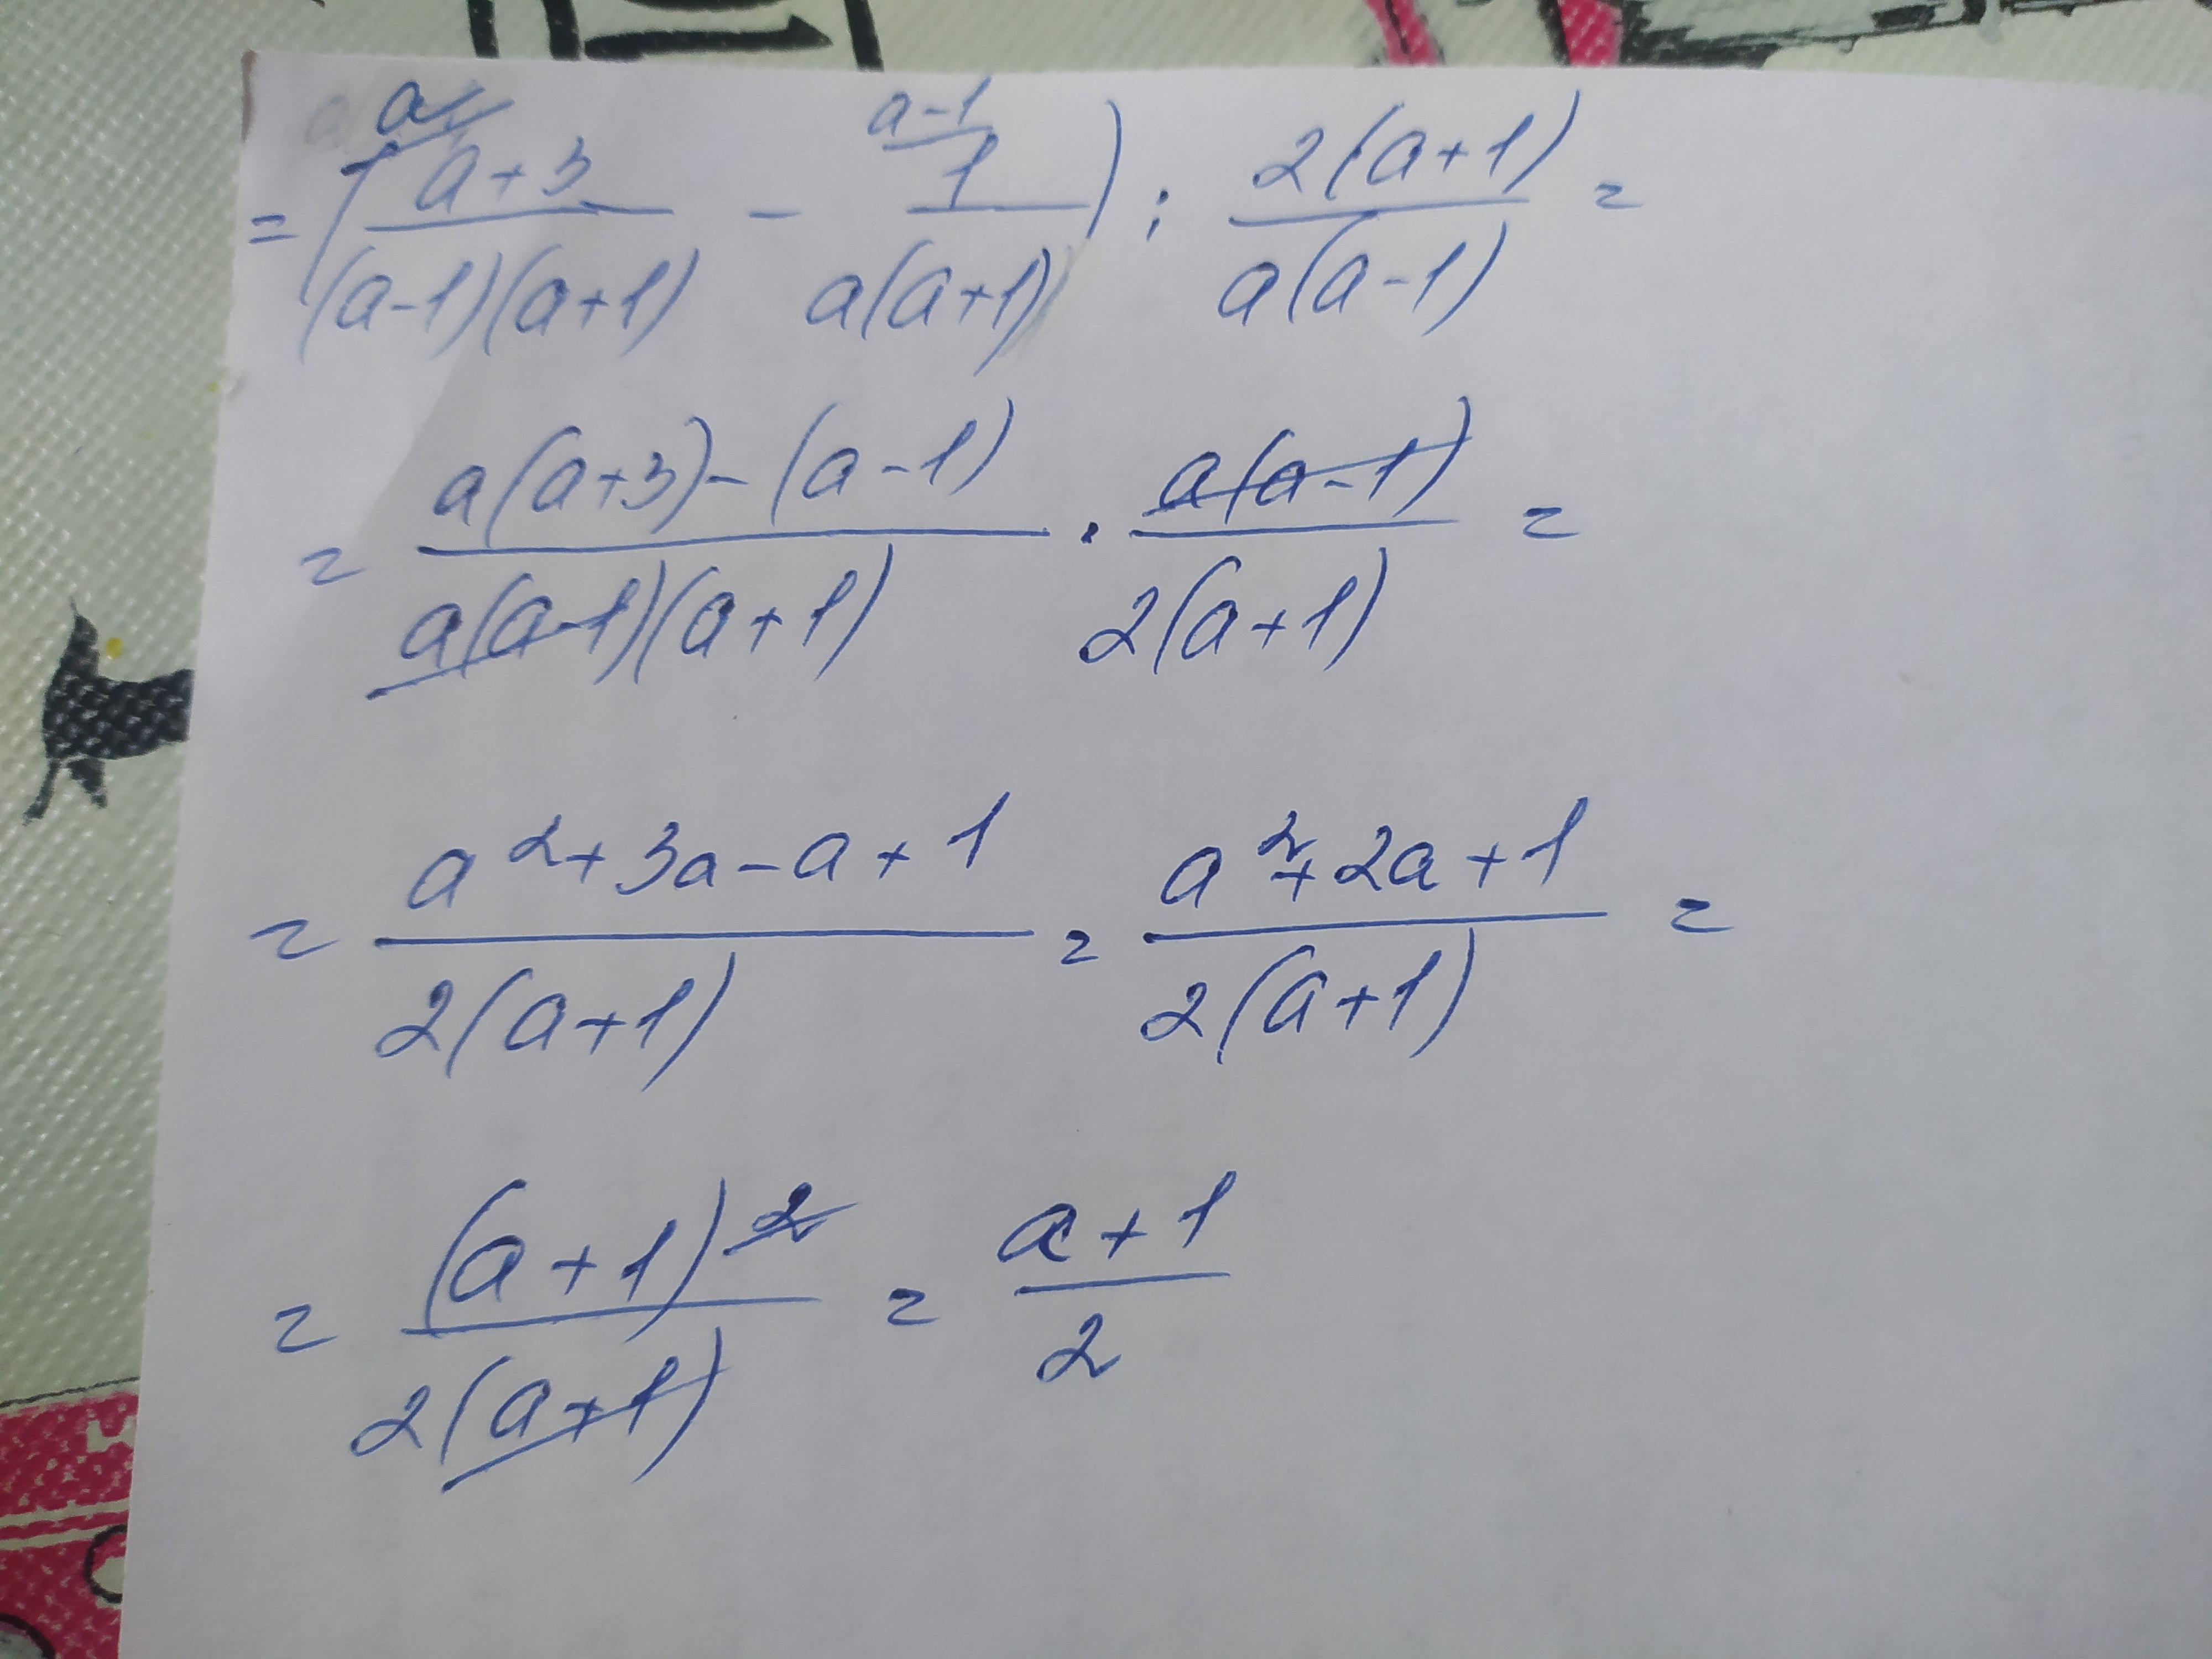 = (a+3/(a-1)(a+1) (a) - 1/a(a+1) (a-1)) : 2(a+1)/a(a-1) =
= a(a+3)-(a-1)/a(a-1)(a+1) · a(a-1)/2(a+1) =
= a²+3a-a+1/2(a+1) = a²+2a+1/2(a+1) =
= (a+1)²/2(a+1) = a+1/2